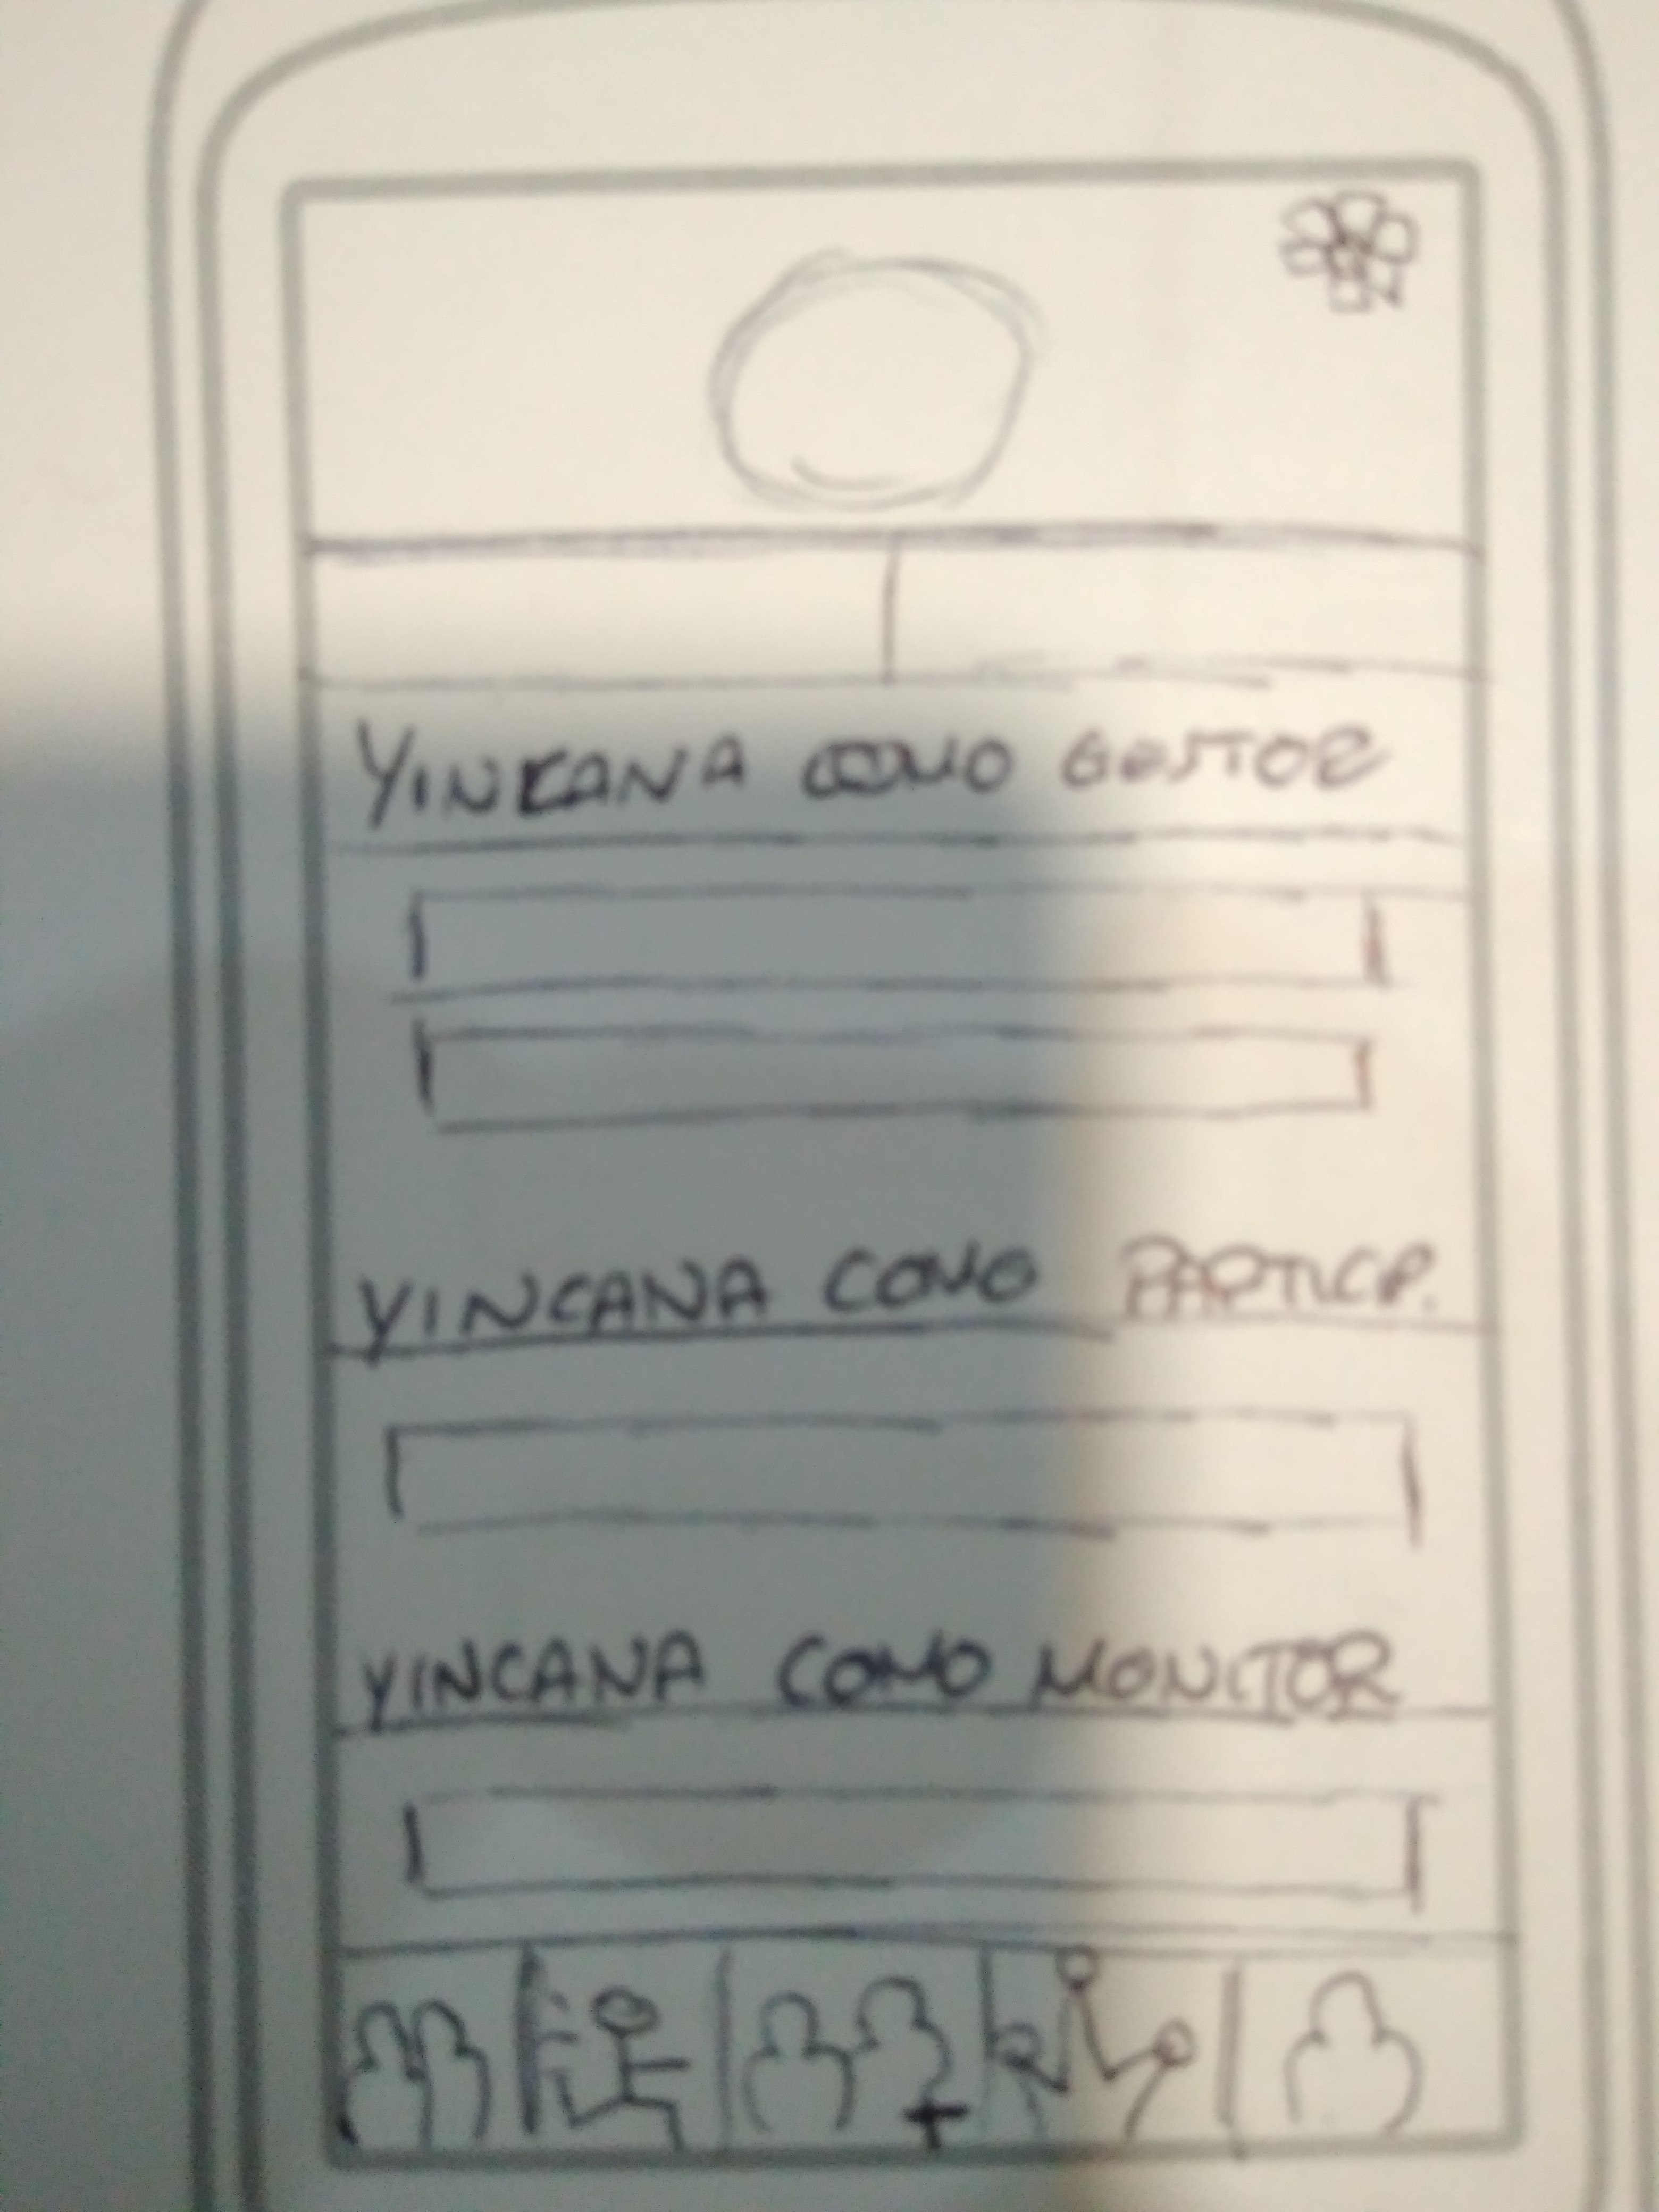 YINCANA COMO GESTOR
YINCANA COMO PARTICP.
YINCANA COMO MONITOR